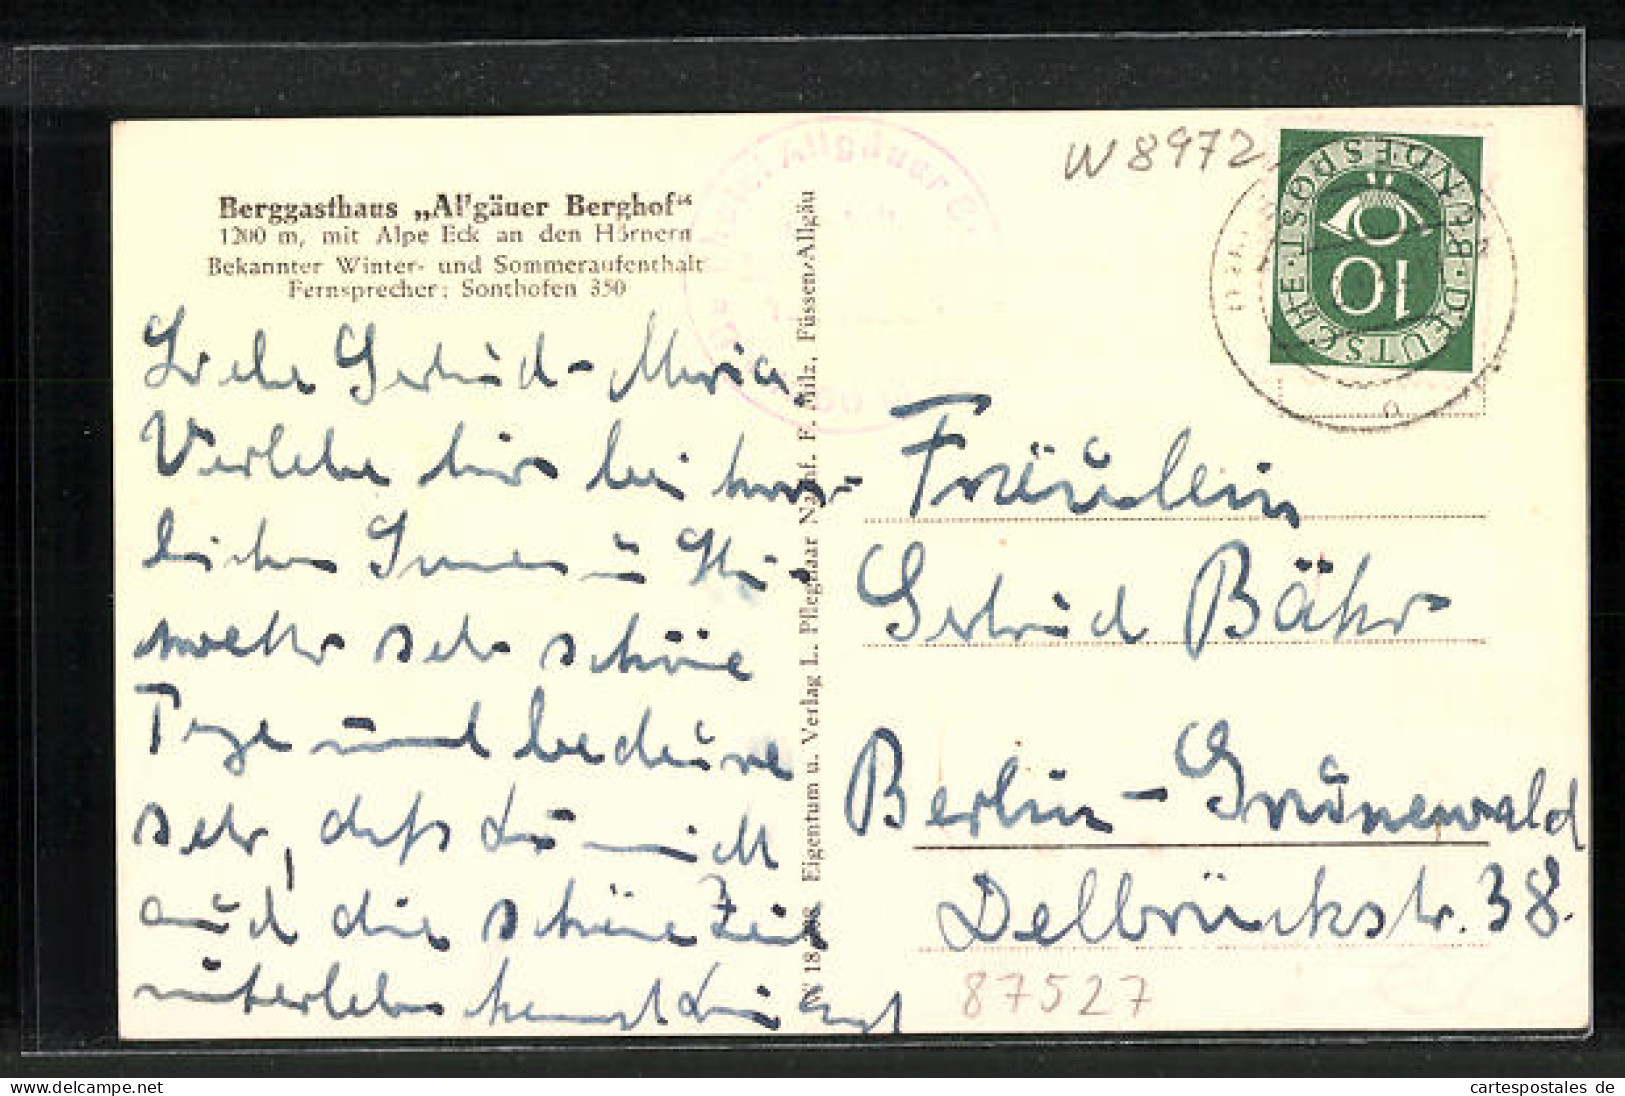 Berggasthaus „Allgäuer Berghof“
1200 m, mit Alpe Eck an den Hörnern
Bekannter Winter- und Sommeraufenthalt
Fernsprecher: Sonthofen 350
Liebe Gertrud-Maria,
Verlebe hier bei herr-
lichem
sehr schöne
Tage und bedaure
sehr, daß Du nicht
auch die schöne Zeit
miterleben kannst Dein
W 18,
Eigentum u. Verlag L. Pfleghaar Nachf. F. Milz, Füssen/Allgäu
Allgäuer
W 8972
DEUTSCHE · BUNDESPOST
10
Fräulein
Gertrud Bähr
Berlin-Grünewald
Delbrückstr. 38.
87527
cartespostales de